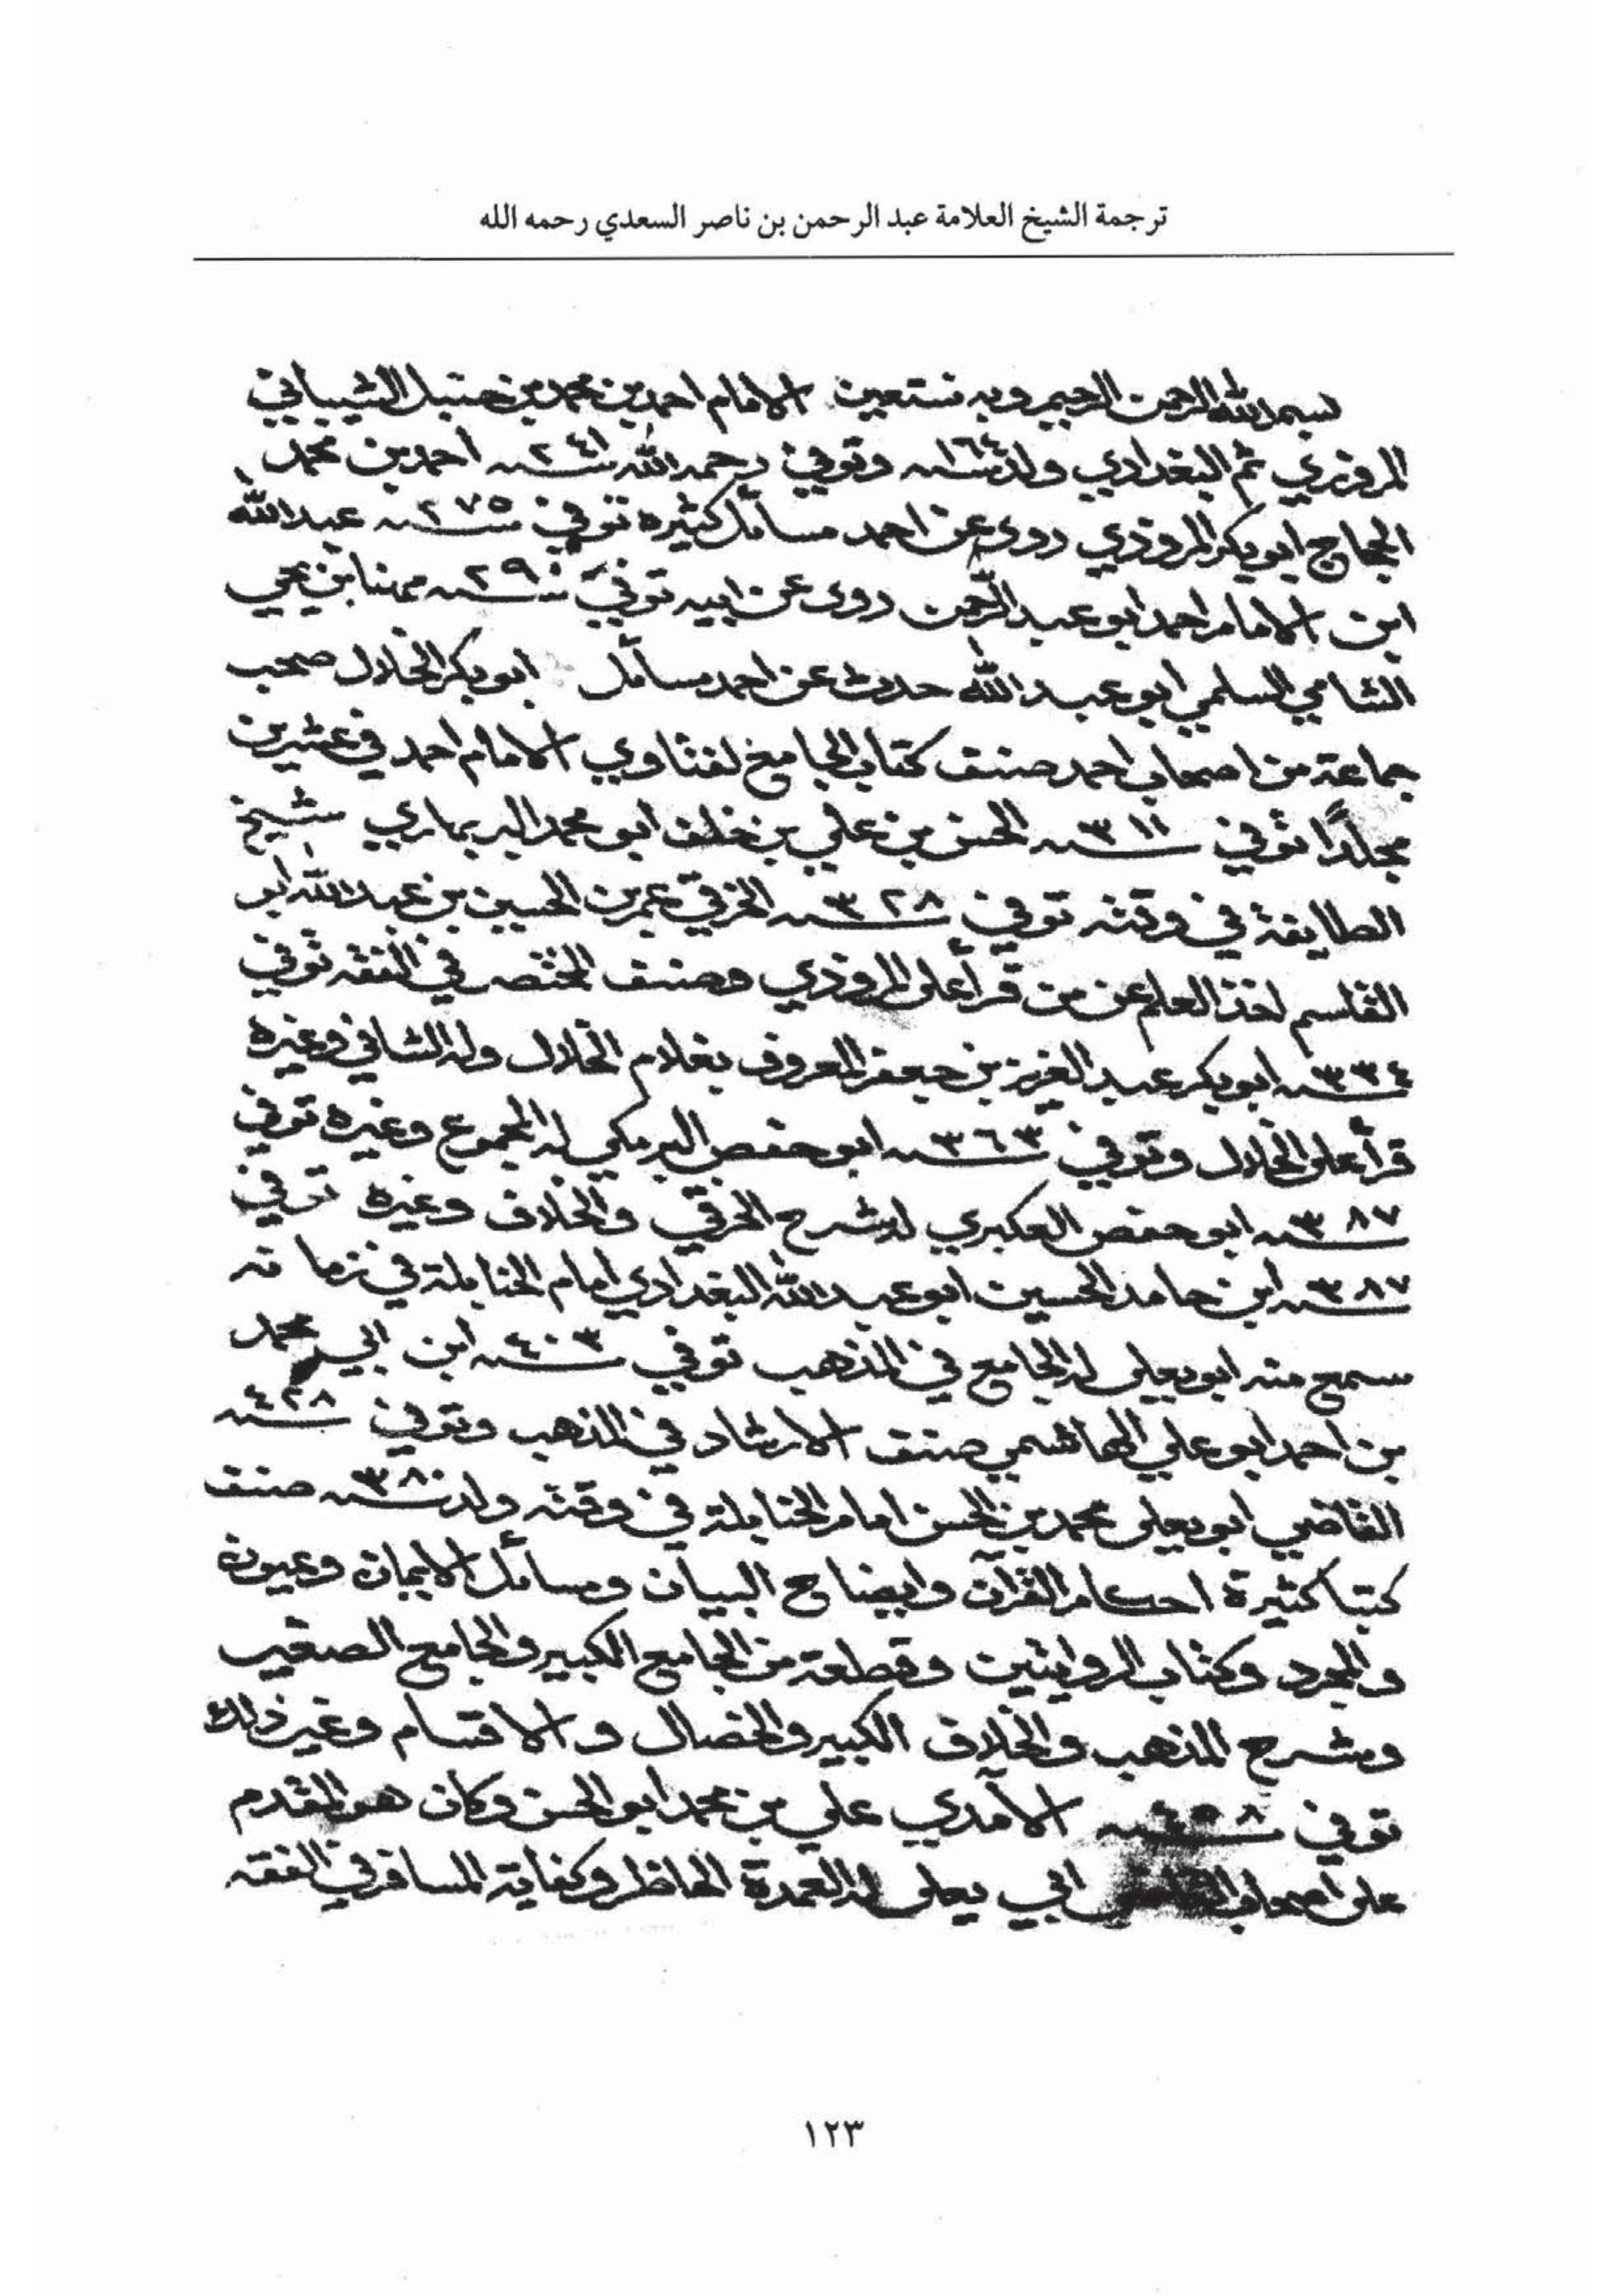 ترجمة الشيخ العلامة عبد الرحمن بن ناصر السعدي رحمه الله
بسم الله الرحمن الرحيم وبه نستعين الامام احمد بن محمد بن حنبل الشيباني
المروزي ثم البغدادي ولد سنة ١٦٤ وتوفي رحمه الله سنة ٢٤١ احمد بن محمد
الحجاج ابو بكر المروذي روى عن احمد مسائل كثيره توفي سنة ٢٧٥ عبد الله
ابن الامام احمد ابو عبد الرحمن روى عن ابيه توفي سنة ٢٩٠ مهنا بن يحي
الشامي السلمي ابو عبد الله حدث عن احمد مسائل ابو بكر الخلال صحب
جماعة من اصحاب احمد صنف كتاب الجامع لفتاوي الامام احمد في عشرين
مجلدًا توفي سنة ٣١١ الحسن بن علي بن خلف ابو محمد البربهاري شيخ
الطايفة في وقته توفي سنة ٣٢٨ الخرقي عمر بن الحسين بن عبد الله ابو
القاسم اخذ العلم عن من قرأ على المروذي وصنف المختصر في الفقه توفي
سنة ٣٣٤ ابو بكر عبد العزيز بن جعفر المعروف بغلام الخلال وله الشافي وغيره
قرأ على الخلال وتوفي سنة ٣٦٣ ابو حفص البرمكي له المجموع وغيره توفي
سنة ٣٨٧ ابو حفص العكبري له شرح الخرقي والخلاف وغيره توفي
سنة ٣٨٧ ابن حامد الحسين ابو عبد الله البغدادي امام الحنابلة في زمانه
سمع منه ابو يعلى له الجامع في المذهب توفي سنة ٤٠٣ ابن ابي محمد
بن احمد ابو علي الهاشمي صنف الارشاد في المذهب وتوفي سنة ٤٢٨
القاضي ابو يعلى محمد بن الحسن امام الحنابلة في وقته ولد سنة ٣٨٠ صنف
كتبا كثيرة احكام القرآن وايضاح البيان ومسائل الايمان وعيون
والمجرد وكتاب الروايتين وقطعة من الجامع الكبير والجامع الصغير
وشرح المذهب والخلاف الكبير والخصال والاقسام وغير ذلك
توفي سنة ٤٥٨ الآمدي علي بن محمد ابو الحسن وكان هو المقدم
على اصحاب القاضي ابي يعلى له العمدة الحاظر وكفاية المسافر في الفقه
١٢٣